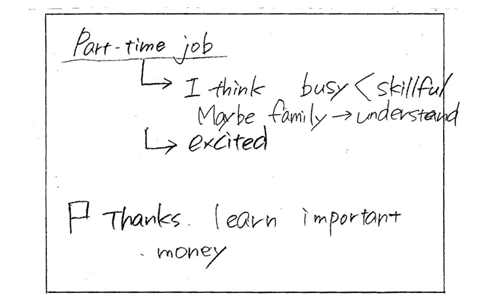 Part-time job
↳ I think busy < skillful
Maybe family → understand
↳ excited
P Thanks. learn important
. money